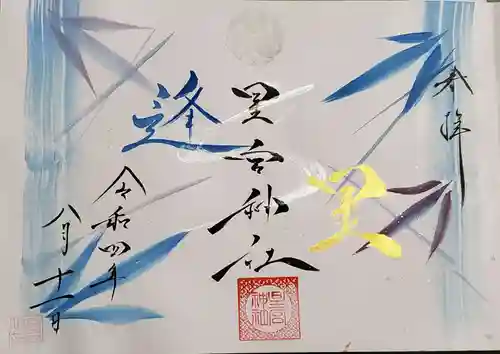 奉拝
星
星宮神社
逢
令和四年
八月十一日